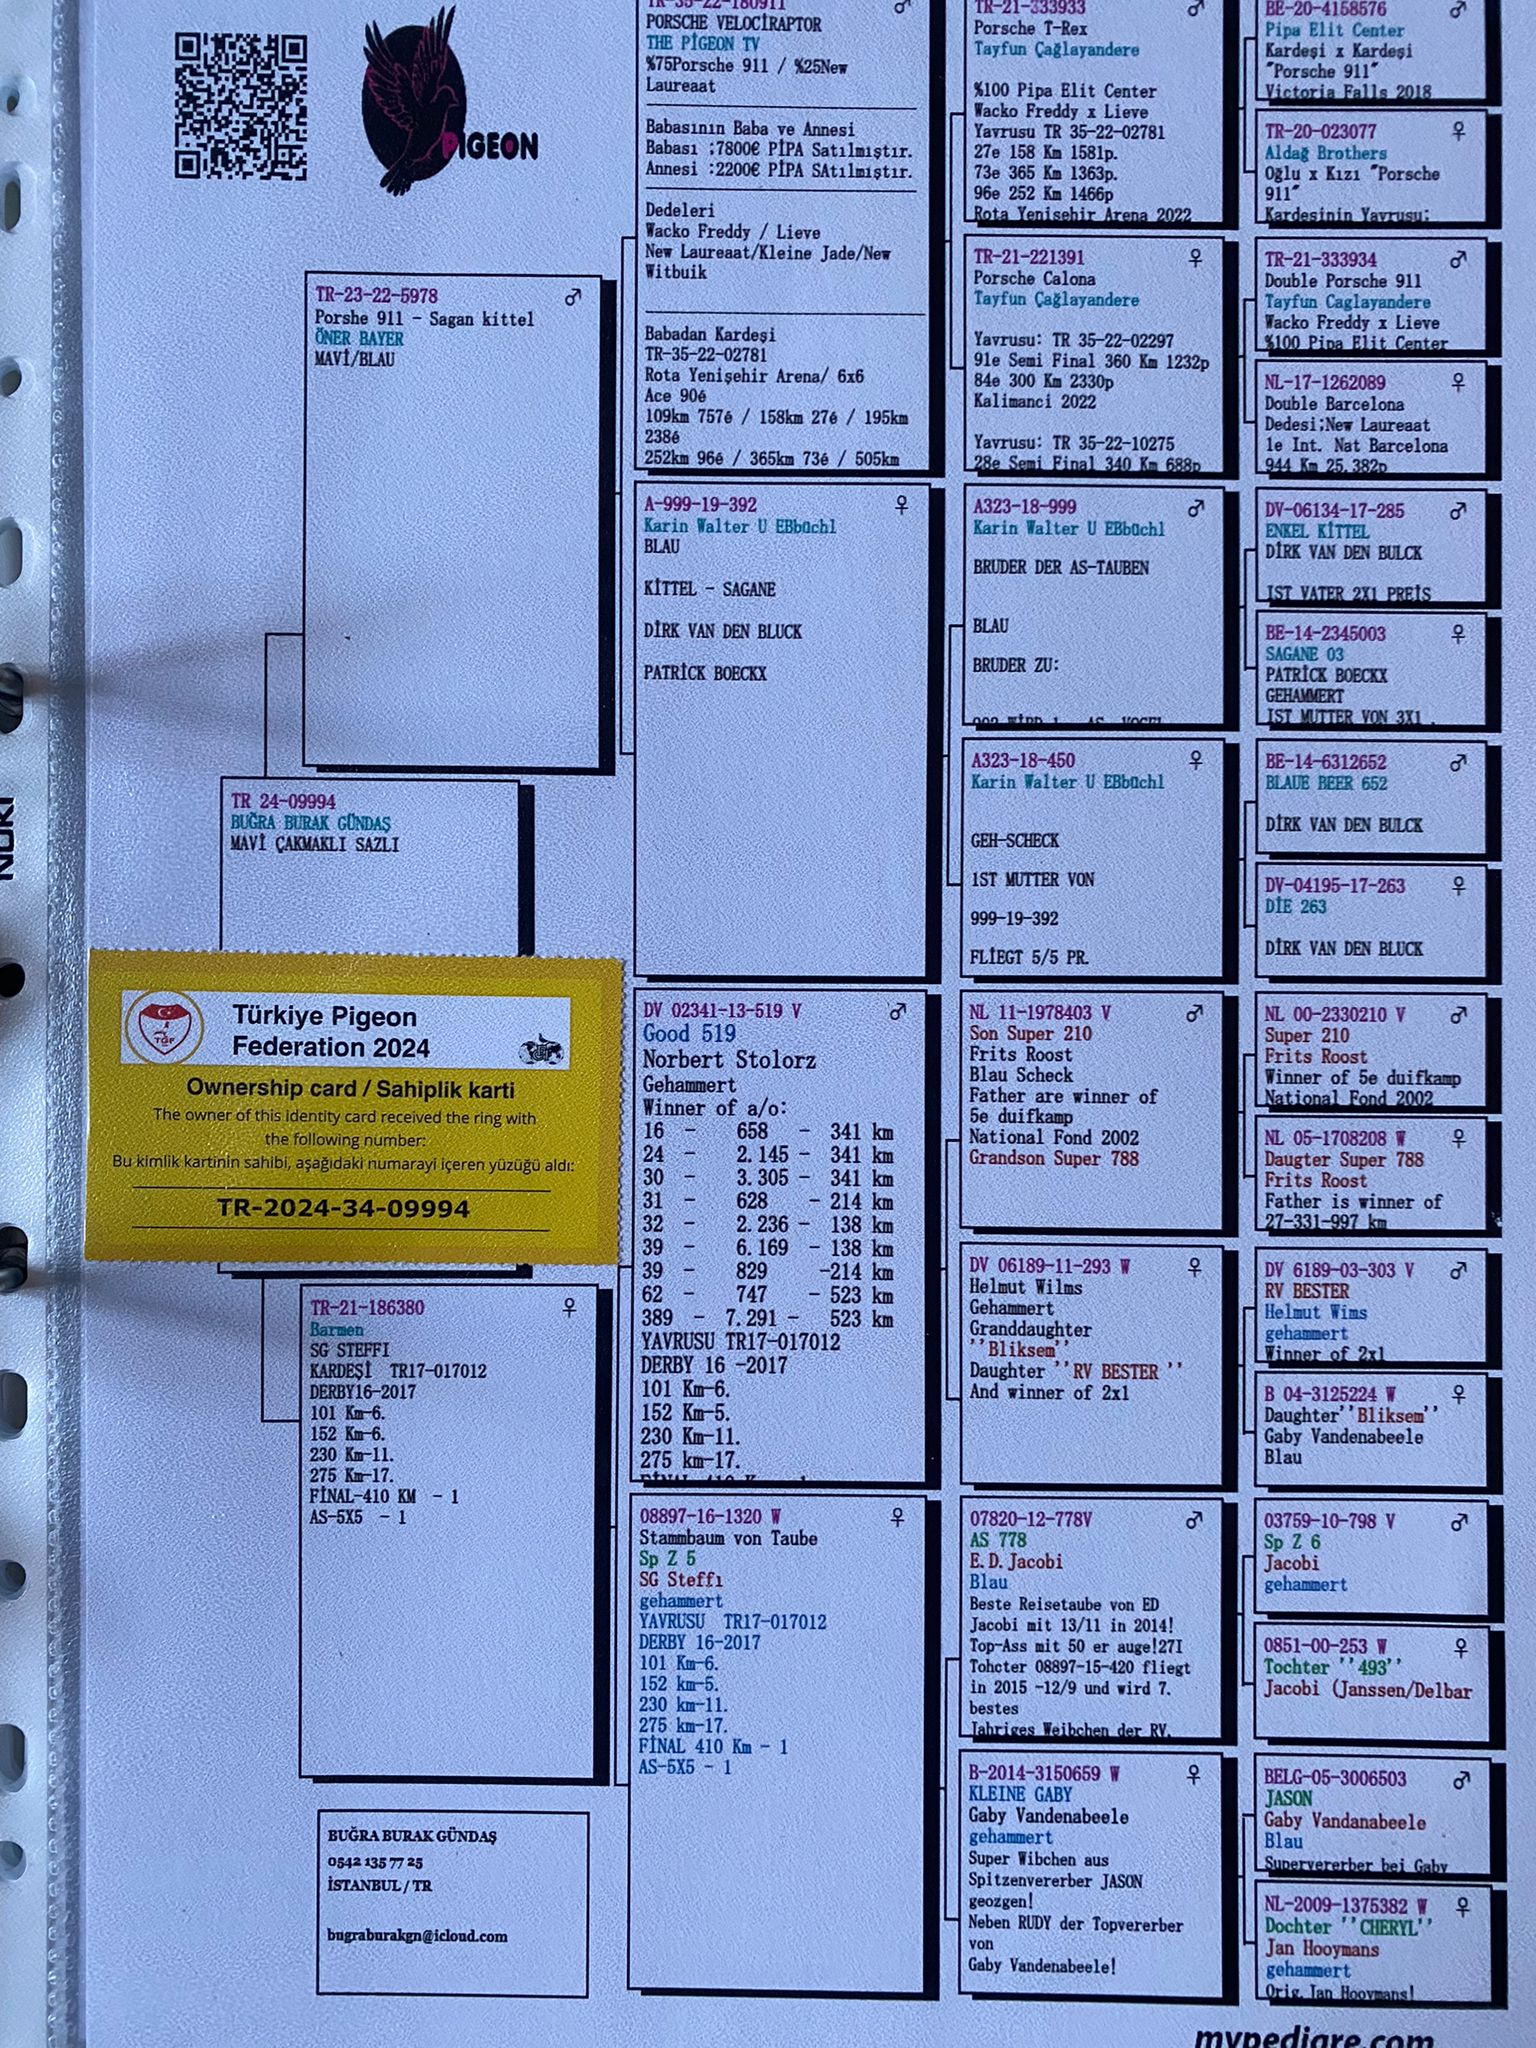 PIGEON
TR-23-22-5978
Porshe 911 - Sagan kittel
ÖNER BAYER
MAVİ/BLAU
TR 24-09994
BUĞRA BURAK GÜNDAŞ
MAVİ ÇAKMAKLI SAZLI
Türkiye Pigeon
Federation 2024
TGF
Ownership card / Sahiplik karti
The owner of this identity card received the ring with
the following number:
Bu kimlik kartinin sahibi, aşağıdaki numarayi içeren yüzüğü aldı:
TR-2024-34-09994
TR-21-186380
Barmen
SG STEFFI
KARDEŞİ TR17-017012
DERBY16-2017
101 Km-6.
152 Km-6.
230 Km-11.
275 Km-17.
FİNAL-410 KM - 1
AS-5X5 - 1
BUĞRA BURAK GÜNDAŞ
0542 135 77 25
İSTANBUL / TR
bugraburakgn@icloud.com
TR-35-22-180911
PORSCHE VELOCİRAPTOR
THE PİGEON TV
%75Porsche 911 / %25New
Laureaat
Babasının Baba ve Annesi
Babası :7800€ PİPA Satılmıştır.
Annesi :2200€ PİPA SAtılmıştır.
Dedeleri
Wacko Freddy / Lieve
New Laureaat/Kleine Jade/New
Witbuik
Babadan Kardeşi
TR-35-22-02781
Rota Yenişehir Arena/ 6x6
Ace 90é
109km 757é / 158km 27é / 195km
238é
252km 96é / 365km 73é / 505km
A-999-19-392
Karin Walter U EBbüchl
BLAU
KİTTEL - SAGANE
DİRK VAN DEN BLUCK
PATRİCK BOECKX
DV 02341-13-519 V
Good 519
Norbert Stolorz
Gehammert
Winner of a/o:
16 - 658 - 341 km
24 - 2.145 - 341 km
30 - 3.305 - 341 km
31 - 628 - 214 km
32 - 2.236 - 138 km
39 - 6.169 - 138 km
39 - 829 -214 km
62 - 747 - 523 km
389 - 7.291 - 523 km
YAVRUSU TR17-017012
DERBY 16 -2017
101 Km-6.
152 Km-5.
230 Km-11.
275 km-17.
FİNAL 410 K
08897-16-1320 W
Stammbaum von Taube
Sp Z 5
SG Steffı
gehammert
YAVRUSU TR17-017012
DERBY 16-2017
101 Km-6.
152 km-5.
230 km-11.
275 km-17.
FİNAL 410 Km - 1
AS-5X5 - 1
TR-21-333933
Porsche T-Rex
Tayfun Çağlayandere
%100 Pipa Elit Center
Wacko Freddy x Lieve
Yavrusu TR 35-22-02781
27e 158 Km 1581p.
73e 365 Km 1363p.
96e 252 Km 1466p
Rota Yenisehir Arena 2022
TR-21-221391
Porsche Calona
Tayfun Çağlayandere
Yavrusu: TR 35-22-02297
91e Semi Final 360 Km 1232p
84e 300 Km 2330p
Kalimanci 2022
Yavrusu: TR 35-22-10275
28e Semi Final 340 Km 688p
A323-18-999
Karin Walter U EBbüchl
BRUDER DER AS-TAUBEN
BLAU
BRUDER ZU:
A323-18-450
Karin Walter U EBbüchl
GEH-SCHECK
1ST MUTTER VON
999-19-392
FLİEGT 5/5 PR.
NL 11-1978403 V
Son Super 210
Frits Roost
Blau Scheck
Father are winner of
5e duifkamp
National Fond 2002
Grandson Super 788
DV 06189-11-293 W
Helmut Wilms
Gehammert
Granddaughter
''Bliksem''
Daughter ''RV BESTER ''
And winner of 2x1
07820-12-778V
AS 778
E.D.Jacobi
Blau
Beste Reisetaube von ED
Jacobi mit 13/11 in 2014!
Top-Ass mit 50 er auge!27I
Tohcter 08897-15-420 fliegt
in 2015 -12/9 und wird 7.
bestes
Jahriges Weibchen der RV.
B-2014-3150659 W
KLEINE GABY
Gaby Vandenabeele
gehammert
Super Wibchen aus
Spitzenvererber JASON
geozgen!
Neben RUDY der Topvererber
von
Gaby Vandenabeele!
BE-20-4158576
Pipa Elit Center
Kardeşi x Kardeşi
"Porsche 911"
Victoria Falls 2018
TR-20-023077
Aldağ Brothers
Oğlu x Kızı "Porsche
911"
Kardesinin Yavrusu:
TR-21-333934
Double Porsche 911
Tayfun Caglayandere
Wacko Freddy x Lieve
%100 Pipa Elit Center
NL-17-1262089
Double Barcelona
Dedesi;New Laureaat
1e Int. Nat Barcelona
944 Km 25.382p
DV-06134-17-285
ENKEL KİTTEL
DİRK VAN DEN BULCK
IST VATER 2X1 PREİS
BE-14-2345003
SAGANE 03
PATRİCK BOECKX
GEHAMMERT
IST MUTTER VON 3X1 .
BE-14-6312652
BLAUE BEER 652
DİRK VAN DEN BULCK
DV-04195-17-263
DİE 263
DİRK VAN DEN BLUCK
NL 00-2330210 V
Super 210
Frits Roost
Winner of 5e duifkamp
National Fond 2002
NL 05-1708208 W
Daugter Super 788
Frits Roost
Father is winner of
27-331-997 km
DV 6189-03-303 V
RV BESTER
Helmut Wims
gehammert
Winner of 2x1
B 04-3125224 W
Daughter''Bliksem''
Gaby Vandenabeele
Blau
03759-10-798 V
Sp Z 6
Jacobi
gehammert
0851-00-253 W
Tochter ''493''
Jacobi (Janssen/Delbar
BELG-05-3006503
JASON
Gaby Vandanabeele
Blau
Supervererber bei Gaby
NL-2009-1375382 W
Dochter ''CHERYL''
Jan Hooymans
gehammert
Orig.Jan Hooymans!
mypedigre.com
NOKI